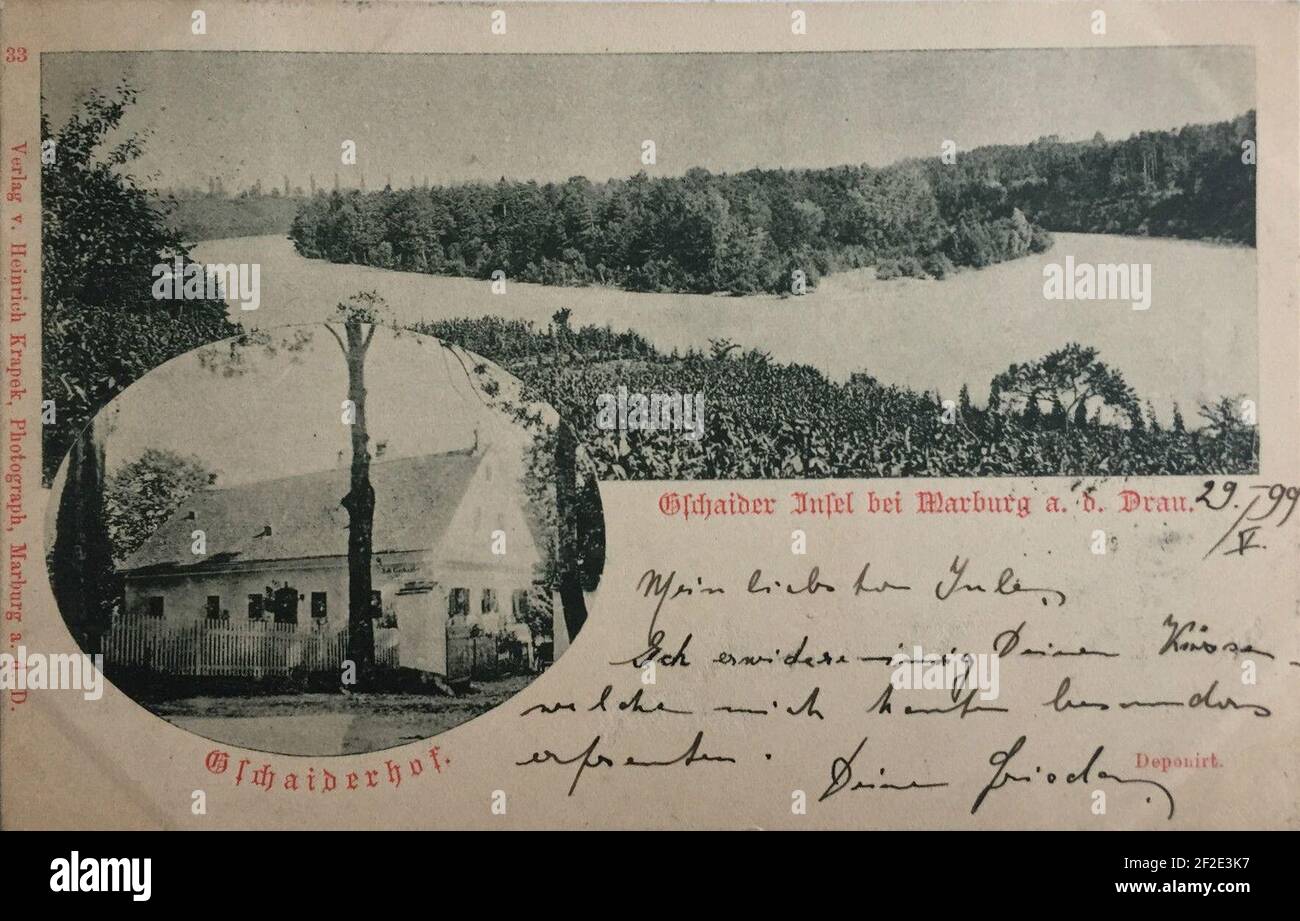 33
Verlag v. Heinrich Krapek, Photograph, Marburg a. d. D.
Gschaider Insel bei Marburg a. d. Drau.
29./V. 99
Gschaiderhof.
Mein liebster Jule,
Ich erwidere innig Deinen Küssen
welche mich heute besonders
erfreuten.
Deine Frieda
Deponirt.
alamy
Image ID: 2F2E3K7
www.alamy.com